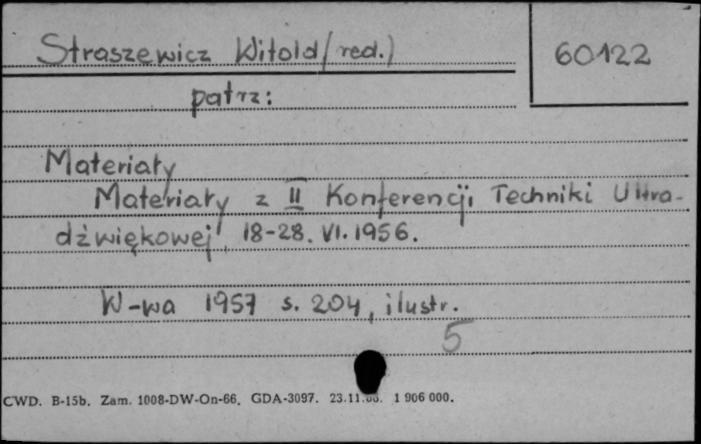 Straszewicz Witold (red.)
60122
patrz:
Materiały
Materiały z II Konferencji Techniki Ultra-
dźwiękowej 18-28. VI. 1956.
W-wa 1957 s. 204, ilustr.
5
CWD. B-15b. Zam. 1008-DW-On-66. GDA-3097. 23.11.66. 1 906 000.